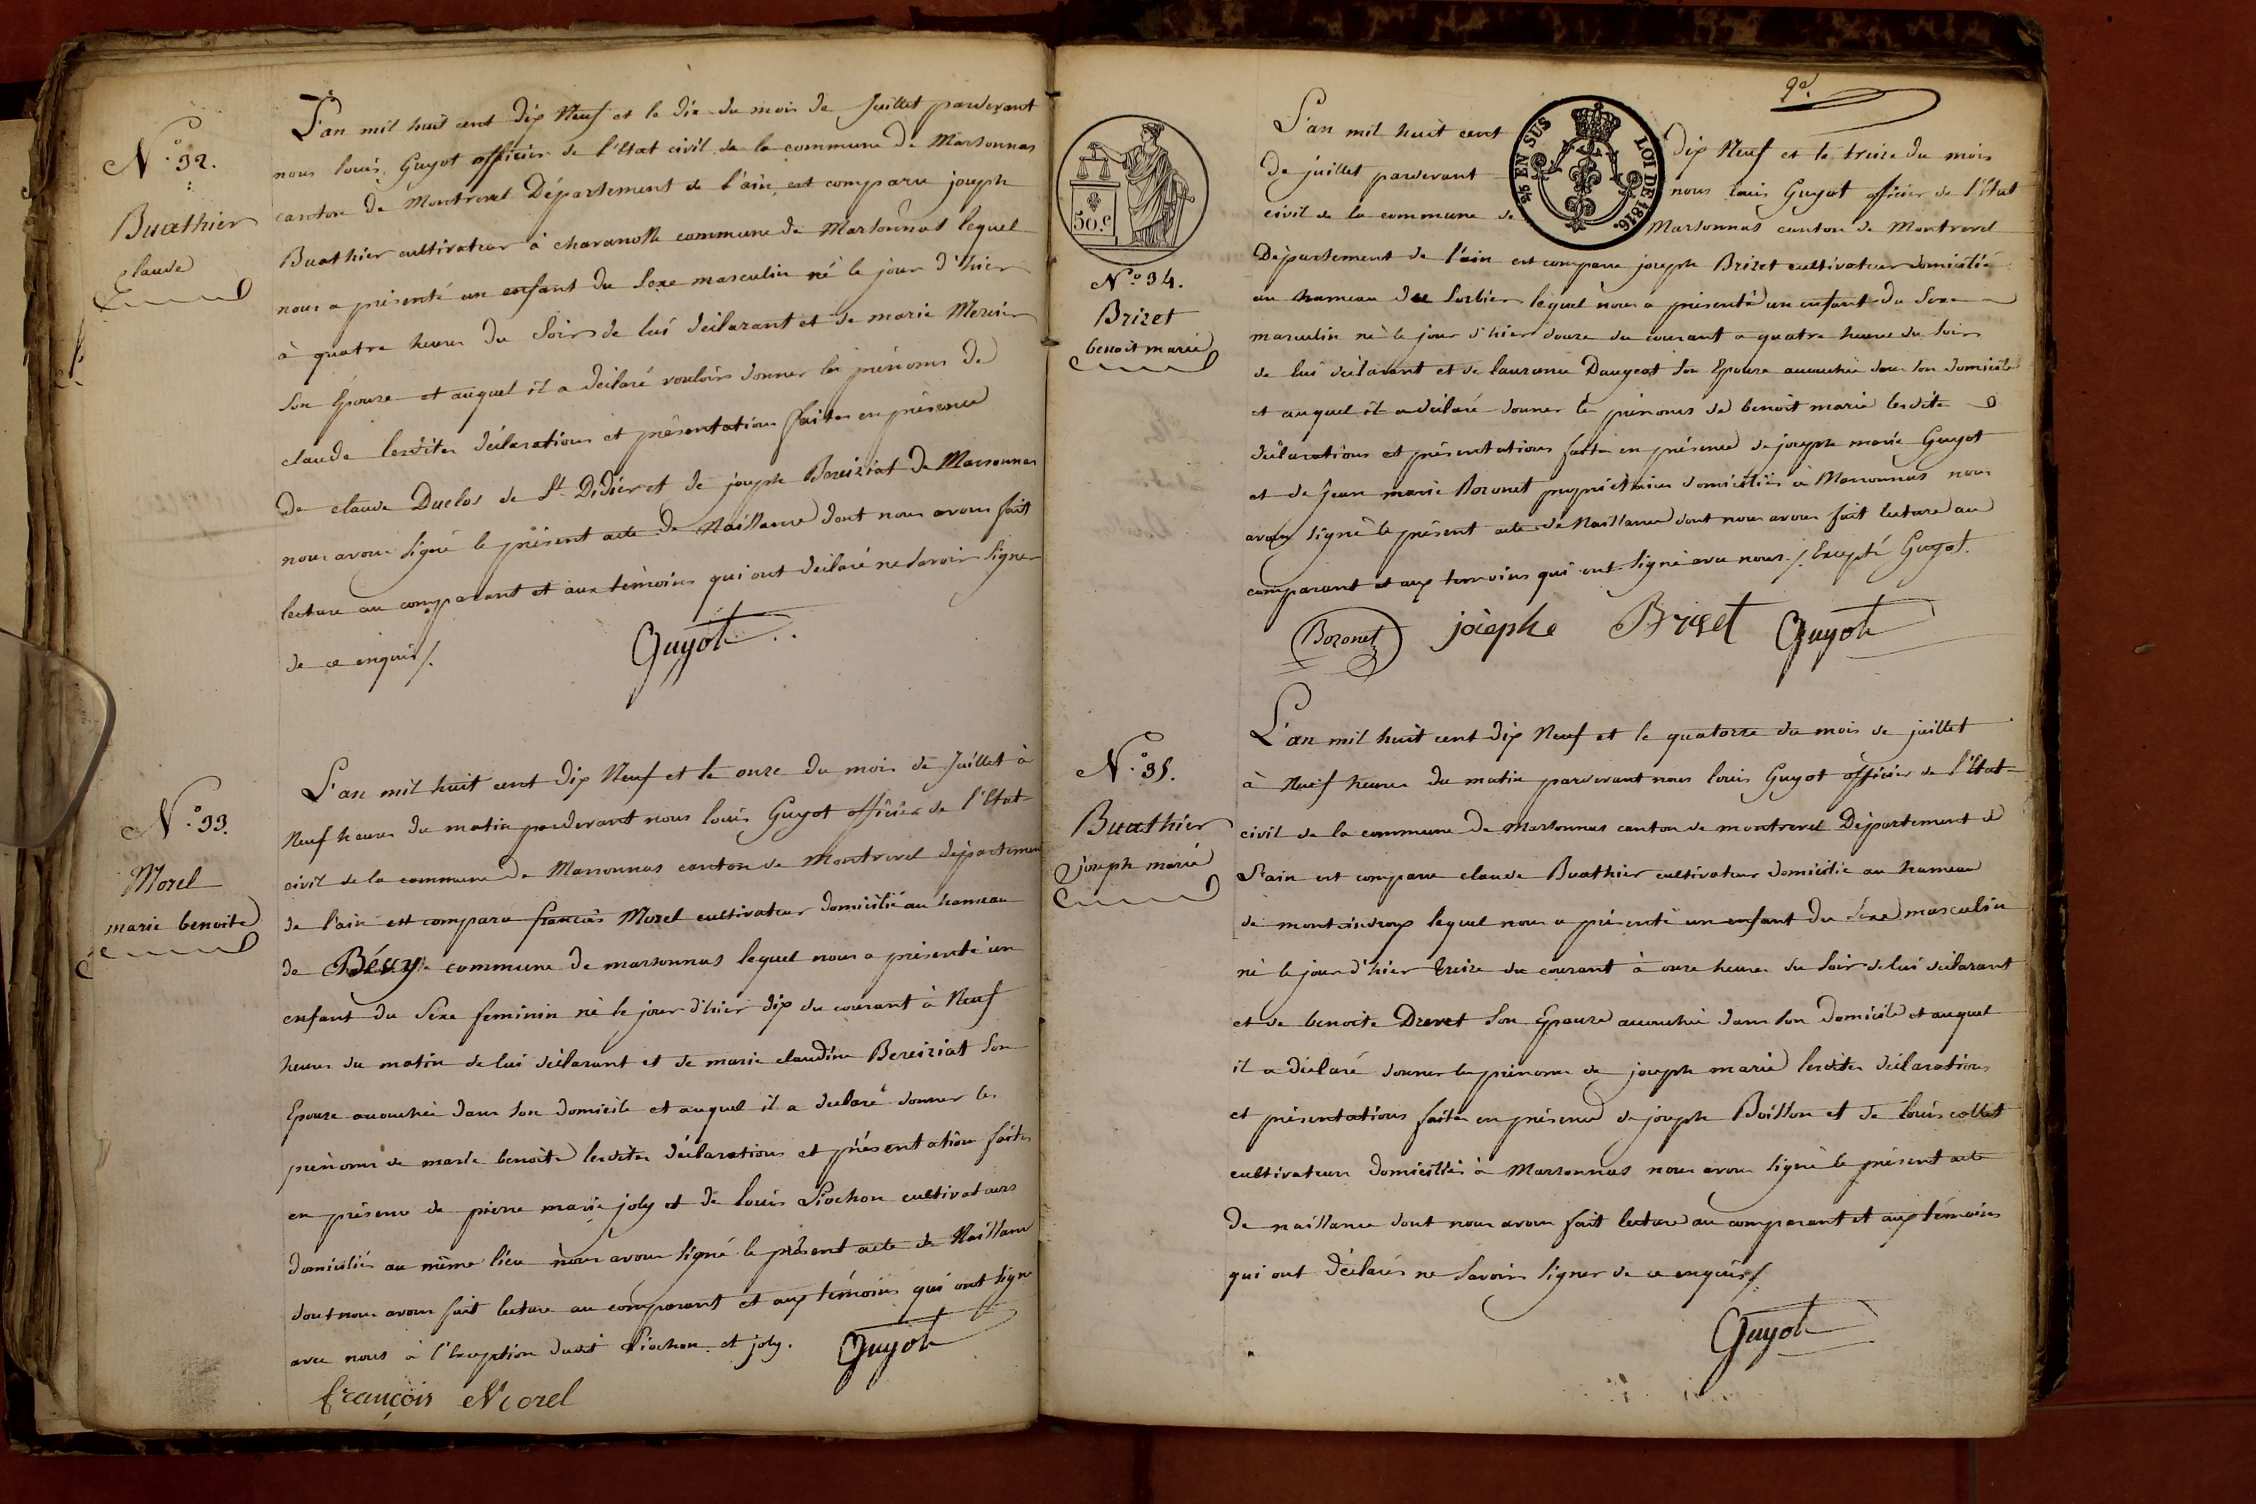 N.° 32.
Buathier
Claude
L'an mil huit cent dix Neuf et le dix du mois de Juillet pardevant
nous louis Guyot officier de l'Etat civil de la commune de Marsonnas
canton de Montrevel Département de l'ain, est comparu joseph
Buathier cultivateur à charanolle commune de Marsonnas lequel
nous a présenté un enfant du Sexe masculin né le jour d'hier
à quatre heures du Soir de lui déclarant et de marie Mercier
Son Epouse et auquel il a déclaré vouloir donner les prénoms de
claude lesdites déclarations et présentations faites en présence
de claude Duclos de St Didier et de joseph Bereiziat de Marsonnas
nous avons signé le présent acte de Naissance dont nous avons fait
lecture au comparant et aux témoins qui ont déclaré ne savoir signer
de ce enquis/.
Guyot
N.° 33.
Morel
marie benoite
L'an mil huit cent dix Neuf et le onze du mois de Juillet à
Neuf heures du matin pardevant nous louis Guyot officier de l'Etat-
civil de la commune de Marsonnas canton de Montrevel département
de l'ain est comparu françois Morel cultivateur domicilié au hameau
de Bévy commune de marsonnas lequel nous a présenté un
enfant du Sexe feminin né le jour d'hier dix du courant à Neuf
heures du matin de lui déclarant et de marie claudine Bereiziat Son
Epouse accouchée dans Son domicile et auquel il a déclaré donner les
prénoms de marie benoite lesdites déclarations et présentation faites
en présence de pierre marie joly et de louis Piochon cultivateurs
domiciliés au même lieu nous avons signé le présent acte de Naissance
dont nous avons fait lecture au comparant et aux témoins qui ont signé
avec nous à l'Exception dudit Piochon et joly.
Guyot
françois Morel
9e.
50.c
25 EN SUS
LOI DE 1816.
N.° 34.
Brizet
benoit marie
L'an mil huit cent dix Neuf et le treize du mois
de juillet pardevant nous louis Guyot officier de l'Etat
civil de la commune de Marsonnas canton de Montrevel
Département de l'ain est comparu joseph Brizet cultivateur domicilié
au hameau du Sorbier lequel nous a présenté un enfant du Sexe
masculin né le jour d'hier douze du courant a quatre heures du Soir
de lui déclarant et de laurence Daugeot Son Epouse accouchée dans Son domicile
et auquel il a déclaré donner les prénoms de benoit marie lesdites
déclarations et présentations faites en présence de joseph marie Guyot
et de Jean marie Boronet propriétaires domiciliés à Marsonnas nous
avons signé le présent acte de Naissance dont nous avons fait lecture au
comparant et aux temoins qui ont signé avec nous/. Excepté Guyot.
Boronet josephe Briset Guyot
N.° 35.
Buathier
joseph marie
L'an mil huit cent dix Neuf et le quatorze du mois de juillet
à Neuf heures du matin pardevant nous louis Guyot officier de l'Etat-
civil de la commune de Marsonnas canton de montrevel Département de
L'ain est comparu claude Buathier cultivateur domicilié au hameau
de montaindroux lequel nous a présenté un enfant du Sexe masculin
né le jour d'hier treize du courant à onze heures du Soir de lui déclarant
et de benoite Drevet Son Epouse accouchée dans Son Domicile et auquel
il a déclaré donner les prénoms de joseph marie lesdites déclarations
et présentations faites en présence de joseph Boisson et de louis collet
cultivateurs domiciliés à Marsonnas nous avons signé le présent acte
de naissance dont nous avons fait lecture au comparant et aux témoins
qui ont déclarés ne Savoir Signer de ce enquis/.
Guyot